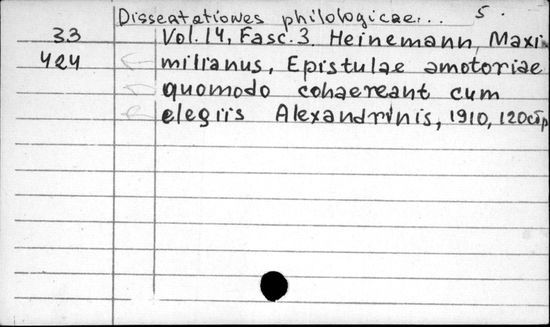 Dissertationes philologicae... 5.
33 Vol. 14, Fasc. 3. Heinemann, Maxi-
424 milianus, Epistulae amatoriae
quomodo cohaereant cum
elegiis Alexandrinis, 1910, 120 стр